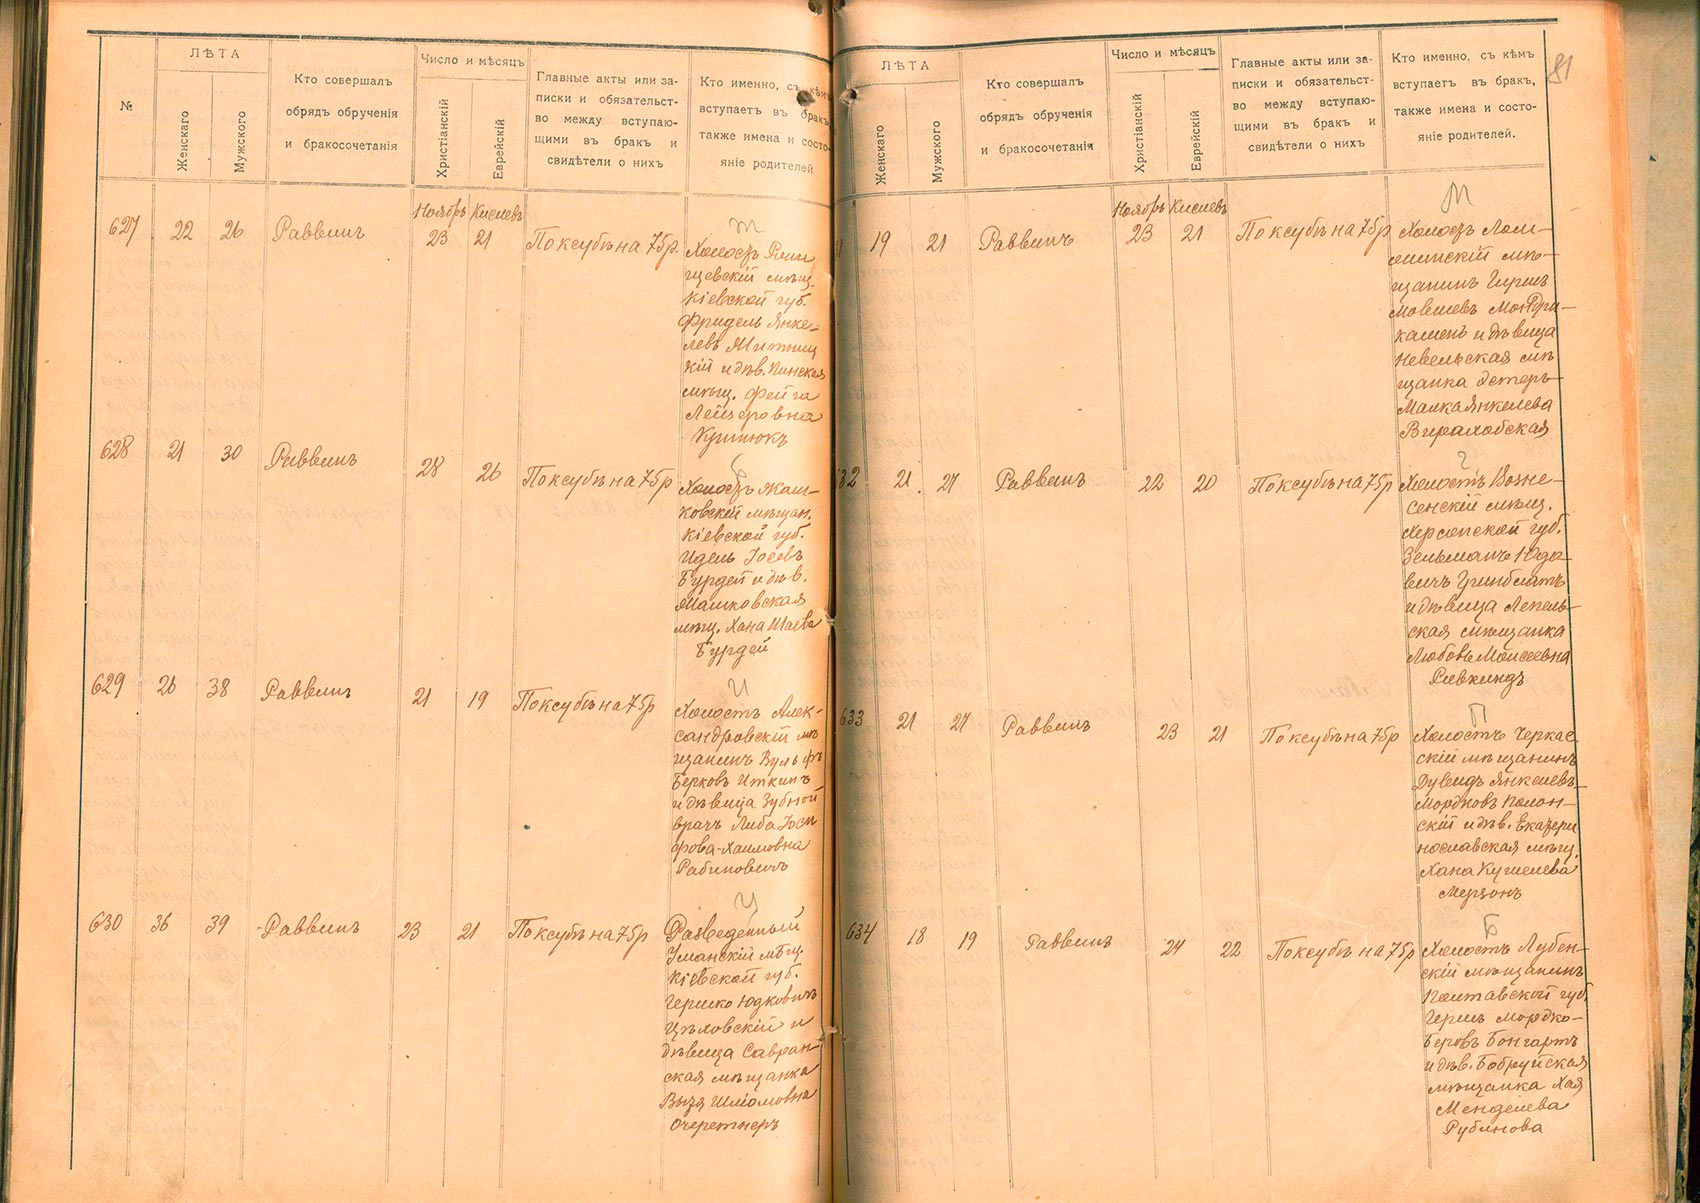 ЛѢТА
Число и мѣсяцъ
№
Женскаго
Мужского
Кто совершалъ
обрядъ обрученія
и бракосочетанія
Христіанскій
Еврейскій
Главные акты или за-
писки и обязательст-
во между вступаю-
щими въ бракъ и
свидѣтели о нихъ
Кто именно, съ кѣмъ
вступаетъ въ бракъ,
также имена и состо-
яніе родителей
Ноябрь Кислевъ
627 22 26 Раввинъ 23 21 По ксубѣ на 75р.
Холостъ
щевскій мѣщ.
Кіевской губ.
Фридель Янке-
левъ Житниц
кій и дѣв. Пинская
мѣщ. Фейга
Лейзеровна
628 21 30 Раввинъ 28 26 По ксубѣ на 75р
Б
Холостъ Жаш-
ковскій мѣщан.
Кіевской губ.
Идель Іосевъ
Бурдей и дѣв.
Жашковская
мѣщ. Хана Шаева
Бурдей
629 26 38 Раввинъ 21 19 По ксубѣ на 75р
И
Холостъ Алек-
сандровскій мѣ
щанинъ Вульфъ
Берковъ Иткинъ
и дѣвица Зубной
врачъ Либа Іоси
фова-Хаимовна
Рабиновичъ
630 36 39 Раввинъ 23 21 По ксубѣ на 75р
Ц
Разведенный
Уманскій мѣщ.
Кіевской губ.
Гершко Юдковичъ
Цѣловскій и
дѣвица Савран-
ская мѣщанка
Вызя Шліомовна
Очеретнеръ
81
ЛѢТА
Число и мѣсяцъ
Женскаго
Мужского
Кто совершалъ
обрядъ обрученія
и бракосочетанія
Христіанскій
Еврейскій
Главные акты или за-
писки и обязательст-
во между вступаю-
щими въ бракъ и
свидѣтели о нихъ
Кто именно, съ кѣмъ
вступаетъ въ бракъ,
также имена и состо-
яніе родителей.
Ноябрь Кислевъ
М
31 19 21 Раввинъ 23 21 По ксубѣ на 75р
Холостъ Лом-
жинскій мѣ-
щанинъ Гиршъ
Мовшевъ Мондра-
и дѣвица
Невельская мѣ
щанка Эстеръ-
Малка Янкелева
632 21 27 Раввинъ 22 20 По ксубѣ на 75р
Г
Холостъ Возне-
сенскій мѣщ.
Херсонской губ.
Зельманъ Юдо-
вичъ Гринблатъ
и дѣвица Лепель-
ская мѣщанка
Любовь Моисеевна
Ривкиндъ
633 21 27 Раввинъ 23 21 По ксубѣ на 75р
П
Холостъ Черкас
скій мѣщанинъ
Дувидъ Янкелевъ-
Мордковъ Полон-
скій и дѣв. Екатери
нославская мѣщ.
Хана Кушелева
Мерзонъ
634 18 19 Раввинъ 24 22 По ксубѣ на 75р
Б
Холостъ Лубен-
скій мѣщанинъ
Полтавской губ.
Гершъ Мордко-
Беровъ Бонгартъ
и дѣв. Бобруйская
мѣщанка Хая
Менделева
Рубинова